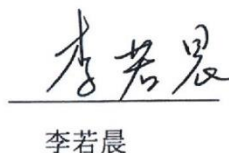 李若晨
李若晨